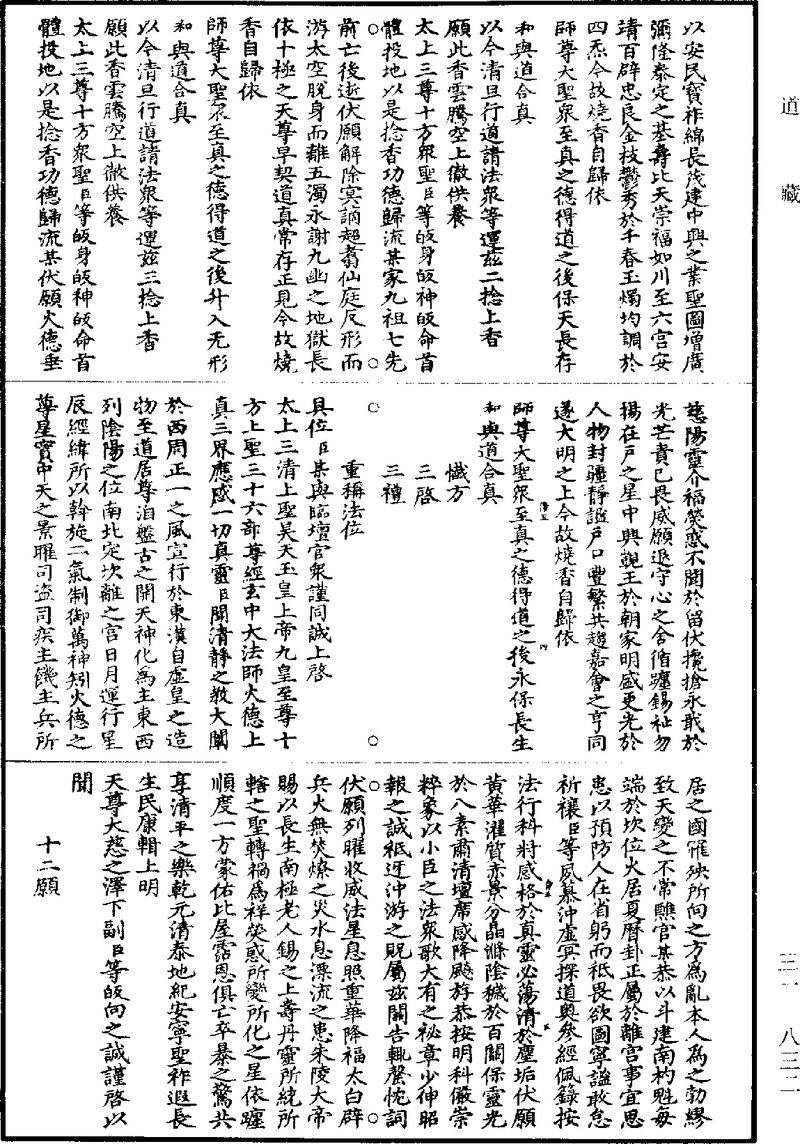 道藏
以安民寶祚綿長茂建中興之業聖圖增廣
彌隆泰定之基壽比天崇福如川至六宮安
靖百辟忠良金枝鬱秀於千春玉燭均調於
四炁今故燒香自歸依
師尊大聖衆至真之德得道之後保天長存
和與道合真
以今清旦行道請法衆等運茲二捻上香
願此香雲騰空上徹供養
太上三尊十方衆聖臣等皈身皈神皈命首
體投地以是捻香功德歸流某家九祖七先
前亡後逝伏願解除冥謫超翥仙庭反形而
游太空脫身而離五濁永謝九幽之地獄長
依十極之天尊早契道真常存正見今故燒
香自歸依
師尊大聖衆至真之德得道之後升入无形
和與道合真
以今清旦行道請法衆等運茲三捻上香
願此香雲騰空上徹供養
太上三尊十方衆聖臣等皈身皈神皈命首
體投地以是捻香功德歸流某伏願火德垂
慈陽靈介福熒惑不聞於留伏攙搶永戢於
光芒責已長威願退守心之舍循躔錫祉勿
揚在戶之星中興觀王於朝家明盛更光於
人物封疆靜謐戶口豐繁共趨嘉會之亨同
遂大明之上今故燒香自歸依
師尊大聖衆至真之德得道之後永保長生
和與道合真
懴方
三啓
三禮
重稱法位
具位臣某與臨壇官衆謹同誠上啓
太上三清上聖昊天玉皇上帝九皇至尊十
方上聖三十六部尊經玄中大法師火德上
真三界應感一切真靈臣聞清靜之教大闡
於西周正一之風宣行於東漢自虛皇之造
物至道居尊洎盤古之開天神化爲主東西
列陰陽之位南北定坎離之宮日月運行星
辰經緯所以斡旋二氣制御萬神矧火德之
尊星實中天之景曜司盜司疾主饑主兵所
居之國罹殃所向之方爲亂本人爲之勃繆
致天變之不常醮官某恭以斗建南杓魁每
端於坎位火居夏曆卦正屬於離宮事宜思
患以預防人在省躬而祇畏欲圖寧謐敢怠
祈禳臣等夙慕沖虛冥探道奧參經佩籙按
法行科將感格於真靈必蕩清於塵垢伏願
黃華濯質赤景分晶滌陰穢於百關保靈光
於八素肅清壇席感降飈斿恭按明科嚴崇
粹象以小臣之法衆歌大有之祕章少伸昭
報之誠祇迓沖游之貺屬茲關告輒罄忱詞
伏願列曜收威法星息照重華降福太白辟
兵火無焚燎之災水息漂流之患朱陵大帝
賜以長生南極老人錫之上壽丹靈所統所
轄之聖轉禍爲祥熒惑所變所化之星依躔
順度一方蒙佑比屋霑恩俱亡卒暴之驚共
享清平之樂乾元清泰地紀安寧聖祚遐長
生民康輯上明
天尊大慈之澤下副臣等皈向之誠謹啓以
聞
十二願
三一 八三二